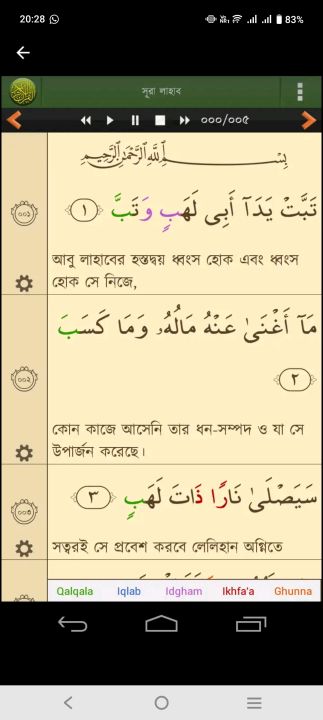 20:28
83%
সূরা লাহাব
০০০/০০৫
بِسْمِ اللَّهِ الرَّحْمَٰنِ الرَّحِيمِ
০০১
تَبَّتْ يَدَآ أَبِى لَهَبٍ وَتَبَّ ﴿١﴾
আবু লাহাবের হস্তদ্বয় ধ্বংস হোক এবং ধ্বংস
হোক সে নিজে,
০০২
مَآ أَغْنَىٰ عَنْهُ مَالُهُۥ وَمَا كَسَبَ
﴿٢﴾
কোন কাজে আসেনি তার ধন-সম্পদ ও যা সে
উপার্জন করেছে।
০০৩
سَيَصْلَىٰ نَارًا ذَاتَ لَهَبٍ ﴿٣﴾
সত্বরই সে প্রবেশ করবে লেলিহান অগ্নিতে
Qalqala Iqlab Idgham Ikhfa'a Ghunna